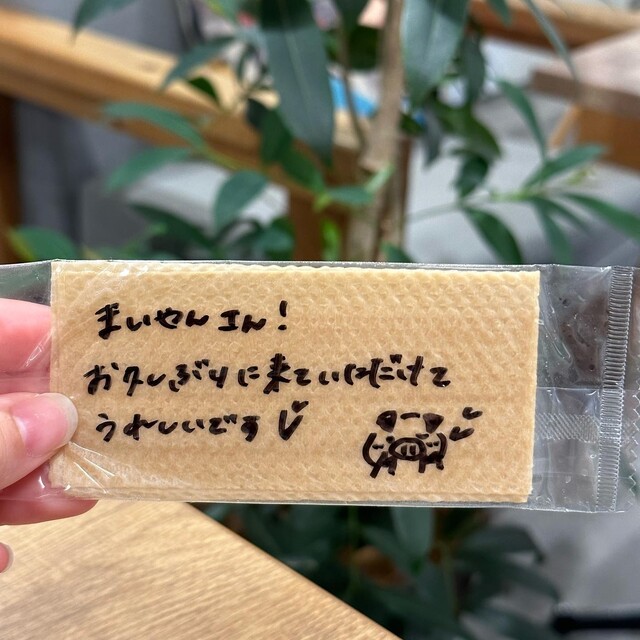 まいやんさん!
お久しぶりに来ていただけて
うれしいです